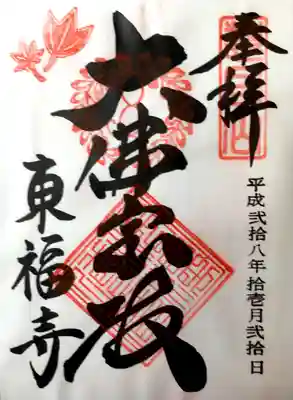 奉拝
平成弐拾八年拾壱月弐拾日
大佛宝殿
東福寺